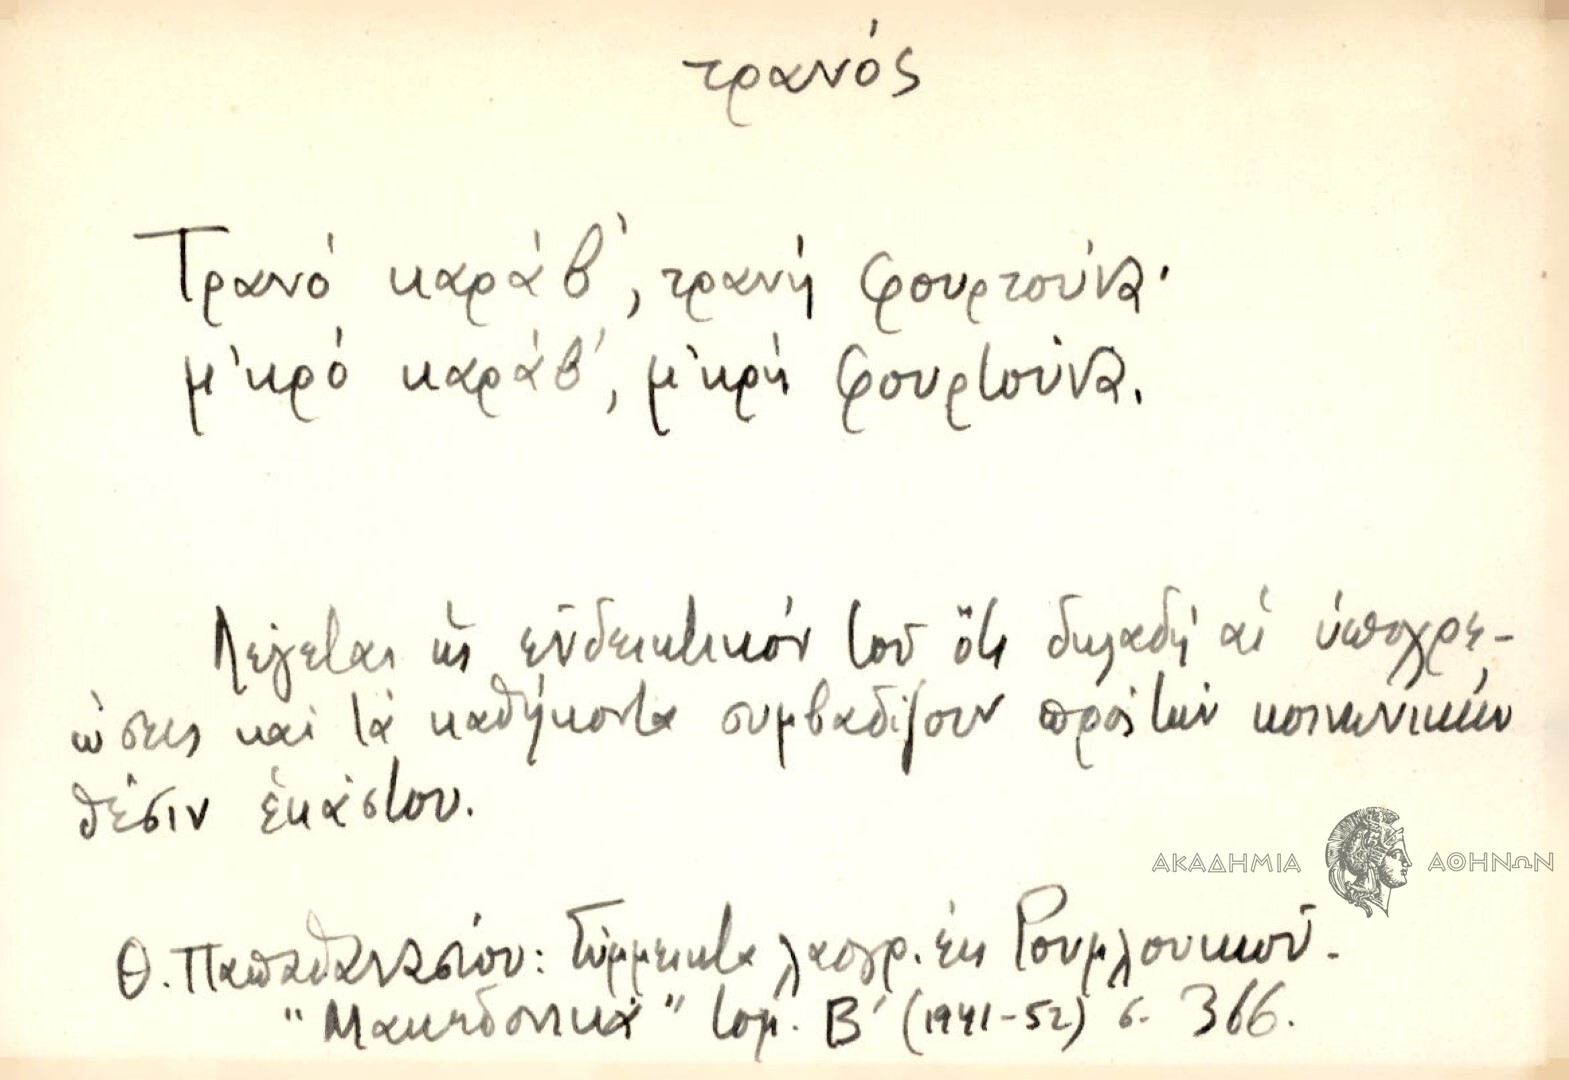 τρανός
Τρανό καράβ', τρανή φουρτούνα·
μ'κρό καράβ', μ'κρή φουρτούνα.
Λέγεται ὡς ἐνδεικτικόν τοῦ ὅτι δηλαδή αἱ ὑποχρε-
ώσεις καί τά καθήκοντα συμβαδίζουν πρός τήν κοινωνικήν
θέσιν ἑκάστου.
ΑΚΑΔΗΜΙΑ ΑΘΗΝΩΝ
Θ. Παπαθανασίου: Σύμμεικτα λαογρ. ἐκ Ρουμλουκιοῦ.
"Μακεδονικά" τομ. Β' (1941-52) σ. 366.